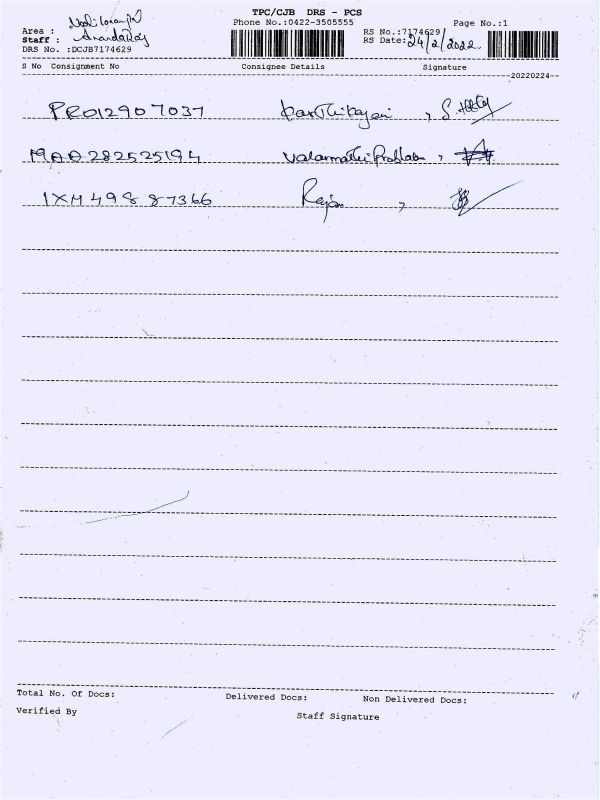 TPC/CJB DRS - PCS
Phone No.:0422-3505555
Page No.:1
Area :
RS No.:7174629
Staff : AnandaRaj
RS Date: 24/2/2022
DRS No. :DCJB7174629
S No Consignment No Consignee Details Signature
--20220224--
PRO12907037 Karthikayani ,
MAA282525194 Valarmathi Prabha ,
IXM49887366 Raja ,
Total No. Of Docs: Delivered Docs: Non Delivered Docs:
Verified By Staff Signature